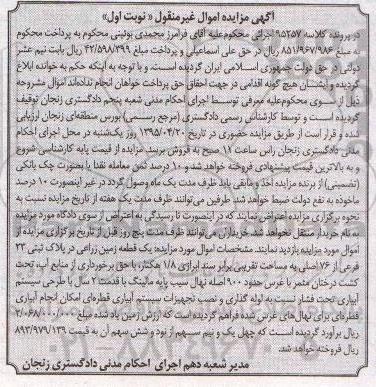 آگهی مزایده اموال غیرمنقول « نوبت اول»
در پرونده کلاسه ۹۵۲۵۷ اجرائی محکوم‌علیه آقای فرامرز محمدی یوئینی محکوم به پرداخت محکوم
به مبلغ ۸۵۱/۹۶۷/۹۸۶ ریال در حق علی اسماعیلی و پرداخت مبلغ ۴۲/۵۹۸/۳۹۹ ریال بابت نیم عشر
دولتی در حق دولت جمهوری اسلامی ایران گردیده است، و با توجه به اینکه حکم به خوانده ابلاغ
گردیده و ایشان هیچ گونه اقدامی در جهت احقاق حق پرداخت خواهان انجام نداده‌اند اموال مشروحه
ذیل از سوی محکوم‌علیه معرفی توسط اجرای احکام مدنی شعبه پنجم دادگستری زنجان توقیف
گردیده است و توسط کارشناس رسمی دادگستری (مرجع رسمی) بورس منطقه‌ای زنجان ارزیابی
شده و قرار است از طریق مزایده حضوری در تاریخ ۱۳۹۵/۰۴/۲۰ روز یک‌شنبه در محل اجرای احکام
مدنی دادگستری زنجان راس ساعت ۱۱ صبح به فروش برسد. مزایده از قیمت پایه کارشناسی شروع
و به بالاترین قیمت پیشنهادی فروخته خواهد شد و ۱۰ درصد ثمن معامله نقدا یا بصورت چک بانکی
(تضمینی) از برنده مزایده اخذ و مابقی باید ظرف مدت یک ماه وصول گردد در غیر اینصورت ۱۰ درصد
ماخوذه به نفع دولت ضبط خواهد شد. طرفین می‌توانند ظرف مدت یک هفته از تاریخ مزایده نسبت به
نحوه برگزاری مزایده اعتراض نمایند که در اینصورت تا رسیدگی به اعتراض از سوی دادگاه مورد مزایده
به نام خریدار منتقل نخواهد شد. خریداران می‌توانند ظرف مدت پنج روز قبل از تاریخ برگزاری مزایده از
اموال مورد مزایده بازدید نمایند. مشخصات اموال مورد مزایده: یک قطعه زمین زراعی در پلاک ثبتی ۳۳
فرعی از ۷۶ اصلی به مساحت تقریبی برابر سند ابرازی ۱/۸ هکتار، با حق برخورداری از منابع آب، تحت
کشت درختان مثمر با غرس حدود ۹۰۰ اصله نهال سیب پایه مالینگ با قدمت ۲ سال با طرحی سیستم
آبیاری تحت فشار نسبت به لوله گذاری و نصب تجهیزات سیستم آبیاری قطره‌ای امکان انجام آبیاری
قطره‌ای برای نهال‌های غرس شده فراهم گردیده است که ارزش زمین یاد شده مبلغ ۳/۰۶۸/۰۰۰/۰۰۰
ریال برآورد گردیده است که چهل یک و نیم سهم از بود و شش سهم آن به قیمت ۸۹۳/۹۷۹/۱۳۹
ریال فروخته خواهد شد.
مدیر شعبه دهم اجرای احکام مدنی دادگستری زنجان